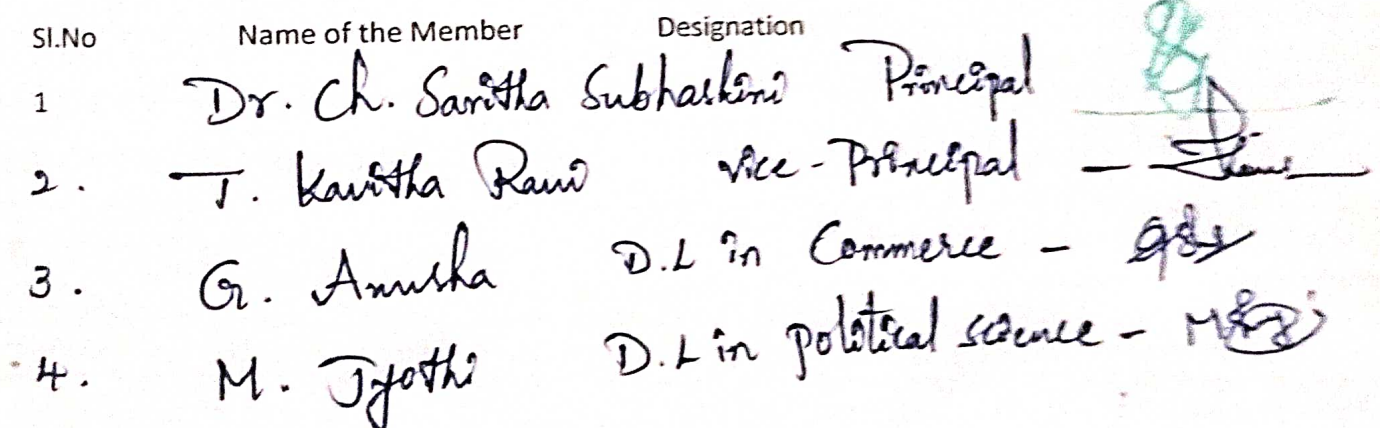 Sl.No Name of the Member Designation
1 Dr. Ch. Saritha Subhashini Principal
2. T. Kavitha Rani vice-Principal -
3. G. Anusha D.L in Commerce -
4. M. Jyothi D.L in political science -